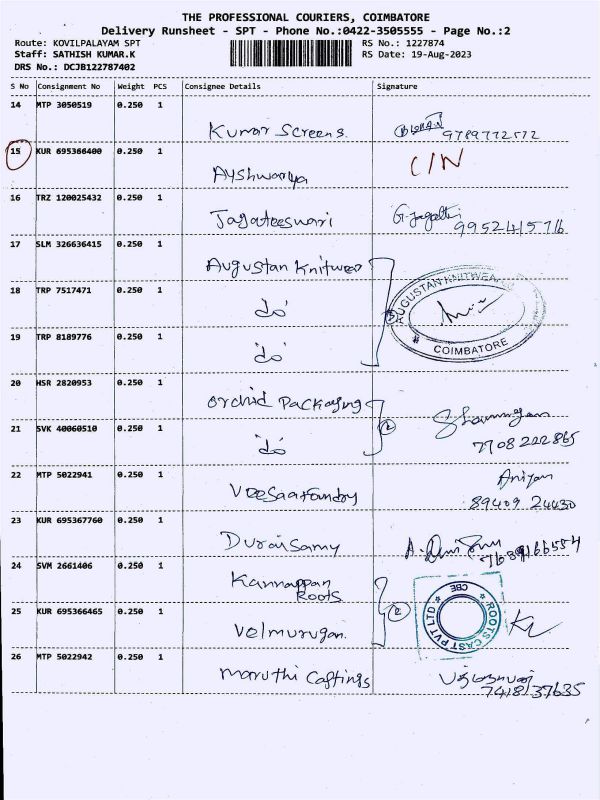 THE PROFESSIONAL COURIERS, COIMBATORE
Delivery Runsheet - SPT - Phone No.:0422-3505555 - Page No.:2
Route: KOVILPALAYAM SPT RS No.: 1227874
Staff: SATHISH KUMAR.K RS Date: 19-Aug-2023
DRS No.: DCJB122787402
S No Consignment No Weight PCS Consignee Details Signature
14 MTP 3050519 0.250 1
Kumar Screens. 9789772572
15 KUR 695366400 0.250 1 C/N
Ayshwarya
16 TRZ 120025432 0.250 1
Jagateeswari 9952415716
17 SLM 326636415 0.250 1
Augustan Knitwear
18 TRP 7517471 0.250 1
do AUGUSTAN KNITWEAR
COIMBATORE
19 TRP 8189776 0.250 1
do
20 HSR 2820953 0.250 1
Orchid Packaging
21 SVK 40060510 0.250 1 2
do 7708222865
22 MTP 5022941 0.250 1
89409 24430
23 KUR 695367760 0.250 1
Duraisamy
24 SVM 2661406 0.250 1
Kannappan
Roots
CBE
ROOTS CAST PVT LTD
25 KUR 695366465 0.250 1 2
Velmurugan.
26 MTP 5022942 0.250 1
Maruthi Castings
7418137635